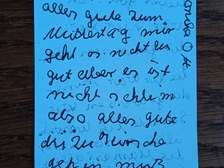 alles gute zum
Muttertag mir
geht es nicht so
gut aber es ist
nicht schlim
also alles gute
die zu
gehen muß